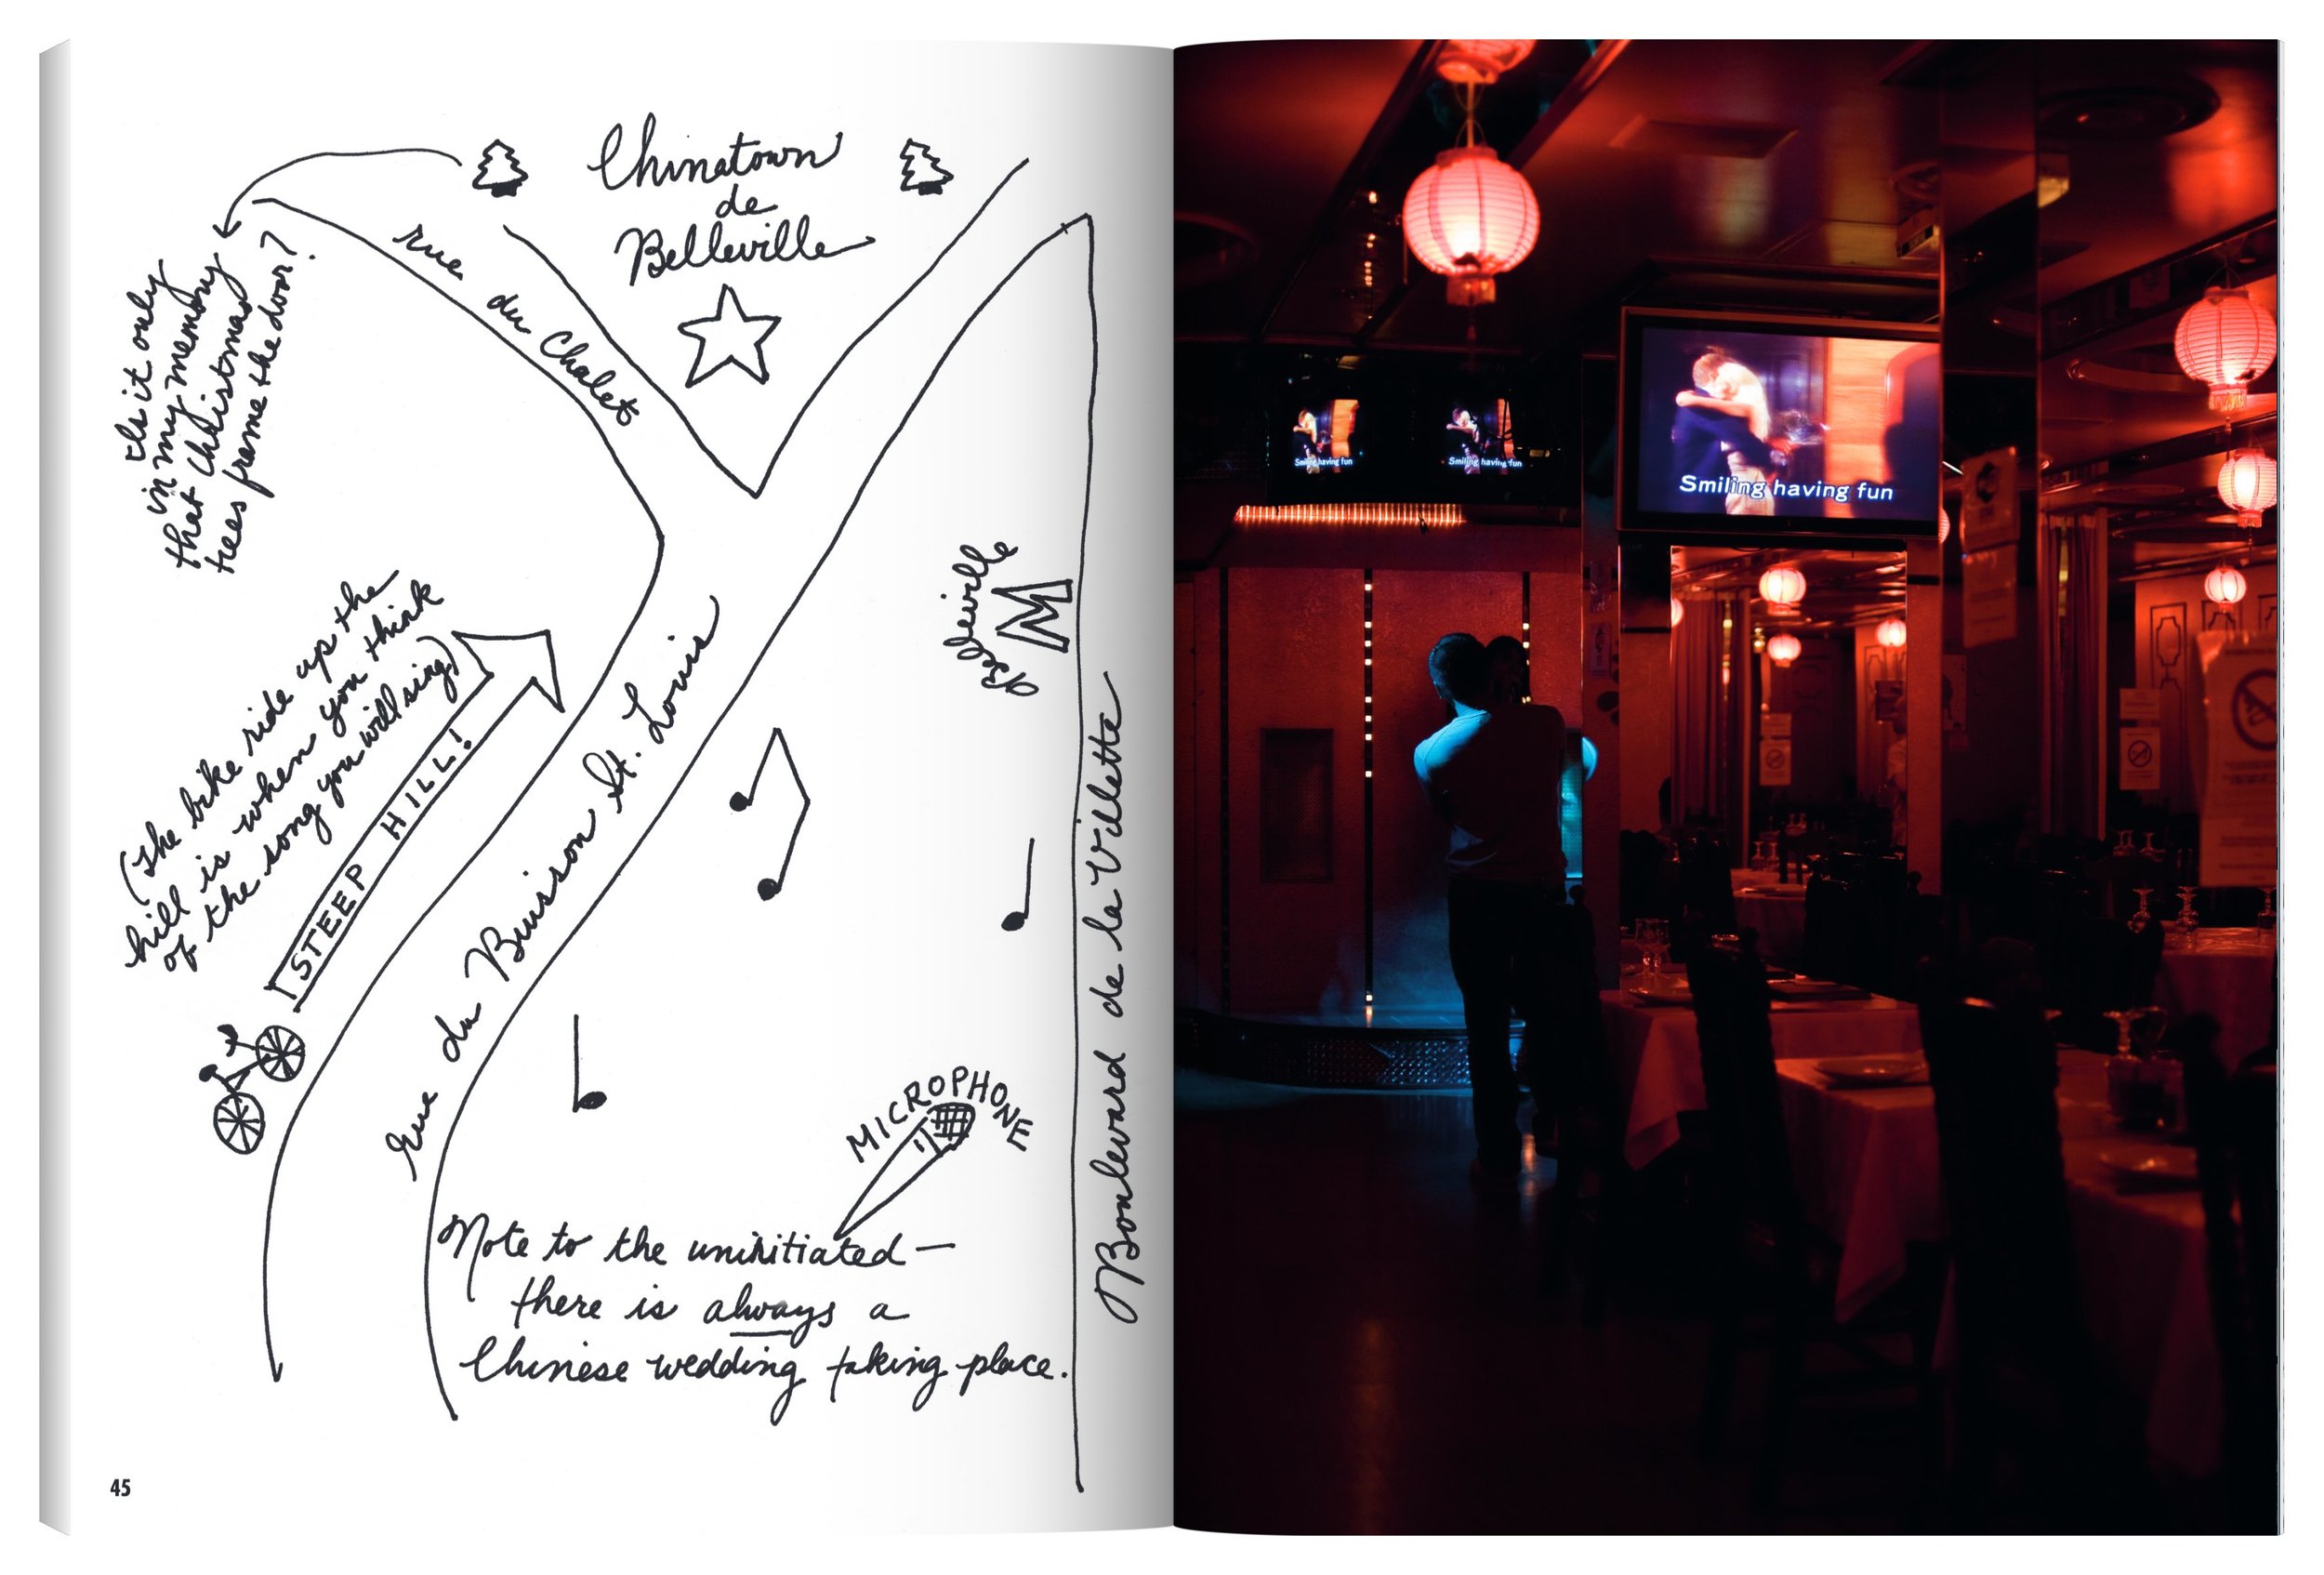 Chinatown
de
Belleville
rue du Chalet
Is it only
in my memory
that Christmas
trees frame the door?
Belleville
M
(the bike ride up the
hill is when you think
of the song you will sing)
STEEP HILL!
rue du Buisson St. Louis
Boulevard de la Villette
MICROPHONE
Note to the uninitiated —
there is always a
Chinese wedding taking place.
45
Smiling having fun
Smiling having fun
Smiling having fun